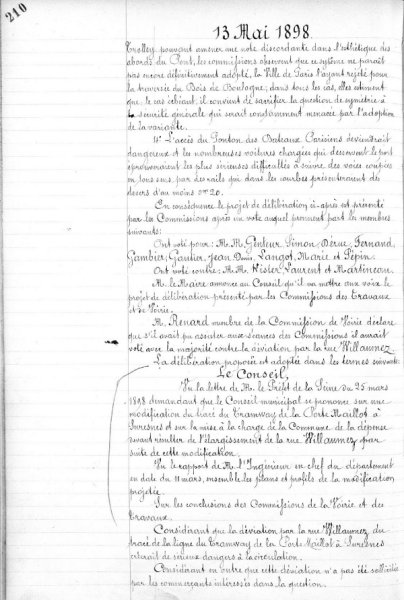 210
13 Mai 1898.
Trolley pouvant amener une note discordante dans l'esthétique des
abords du Pont, les commissions observent que ce système ne paraît
pas encore définitivement adopté, la Ville de Paris l'ayant rejeté pour
la traversée du Bois de Boulogne; dans tous les cas, elles estiment
que, le cas échéant, il convient de sacrifier la question de symétrie à
la sécurité générale qui serait constamment menacée par l'adoption
de la variante.
4° L'accès du Ponton des Bateaux Parisiens deviendrait
dangereux et les nombreuses voitures chargées qui desservent le port
éprouveraient les plus sérieuses difficultés à suivre des voies coupées
en tous sens, par les rails qui dans les courbes présenteraient des
devers d'au moins 0m20.
En conséquence le projet de délibération ci-après est présenté
par les Commissions après un vote auquel prennent part les membres
suivants:
Ont voté pour: M.M. Genteur, Simon, Dérue, Fernand,
Gambier, Gautier, Jean Denis, Langot, Marie et Pépin.
Ont voté contre: M.M. Kister, Laurent et Martineau.
M. le Maire annonce au Conseil qu'il va mettre aux voix le
projet de délibération présenté par les Commissions des Travaux
et de Voirie.
M. Renard membre de la Commission de Voirie déclare
que s'il avait pu assister aux séances des Commissions il aurait
voté avec la majorité contre la déviation par la rue Willaumez
La délibération suivante est adoptée dans les termes suivants:
Le Conseil,
Vu la lettre de M. le Préfet de la Seine du 25 mars
1898 demandant que le Conseil municipal se prononce sur une
modification du tracé du Tramway de la Porte Maillot à
Suresnes et sur la mise à la charge de la Commune de la dépense
pouvant résulter de l'élargissement de la rue Willaumez par
suite de cette modification.
Vu le rapport de M. l'Ingénieur en chef du département
en date du 11 mars, ensemble les plans et profils de la modification
projetée.
Sur les conclusions des Commissions de la Voirie et des
Travaux.
Considérant que la déviation par la rue Willaumez, du
tracé de la ligne du Tramway de la Porte Maillot à Suresnes
créerait de sérieux dangers à la circulation.
Considérant en outre que cette déviation n'a pas été sollicitée
par les commerçants intéressés dans la question.